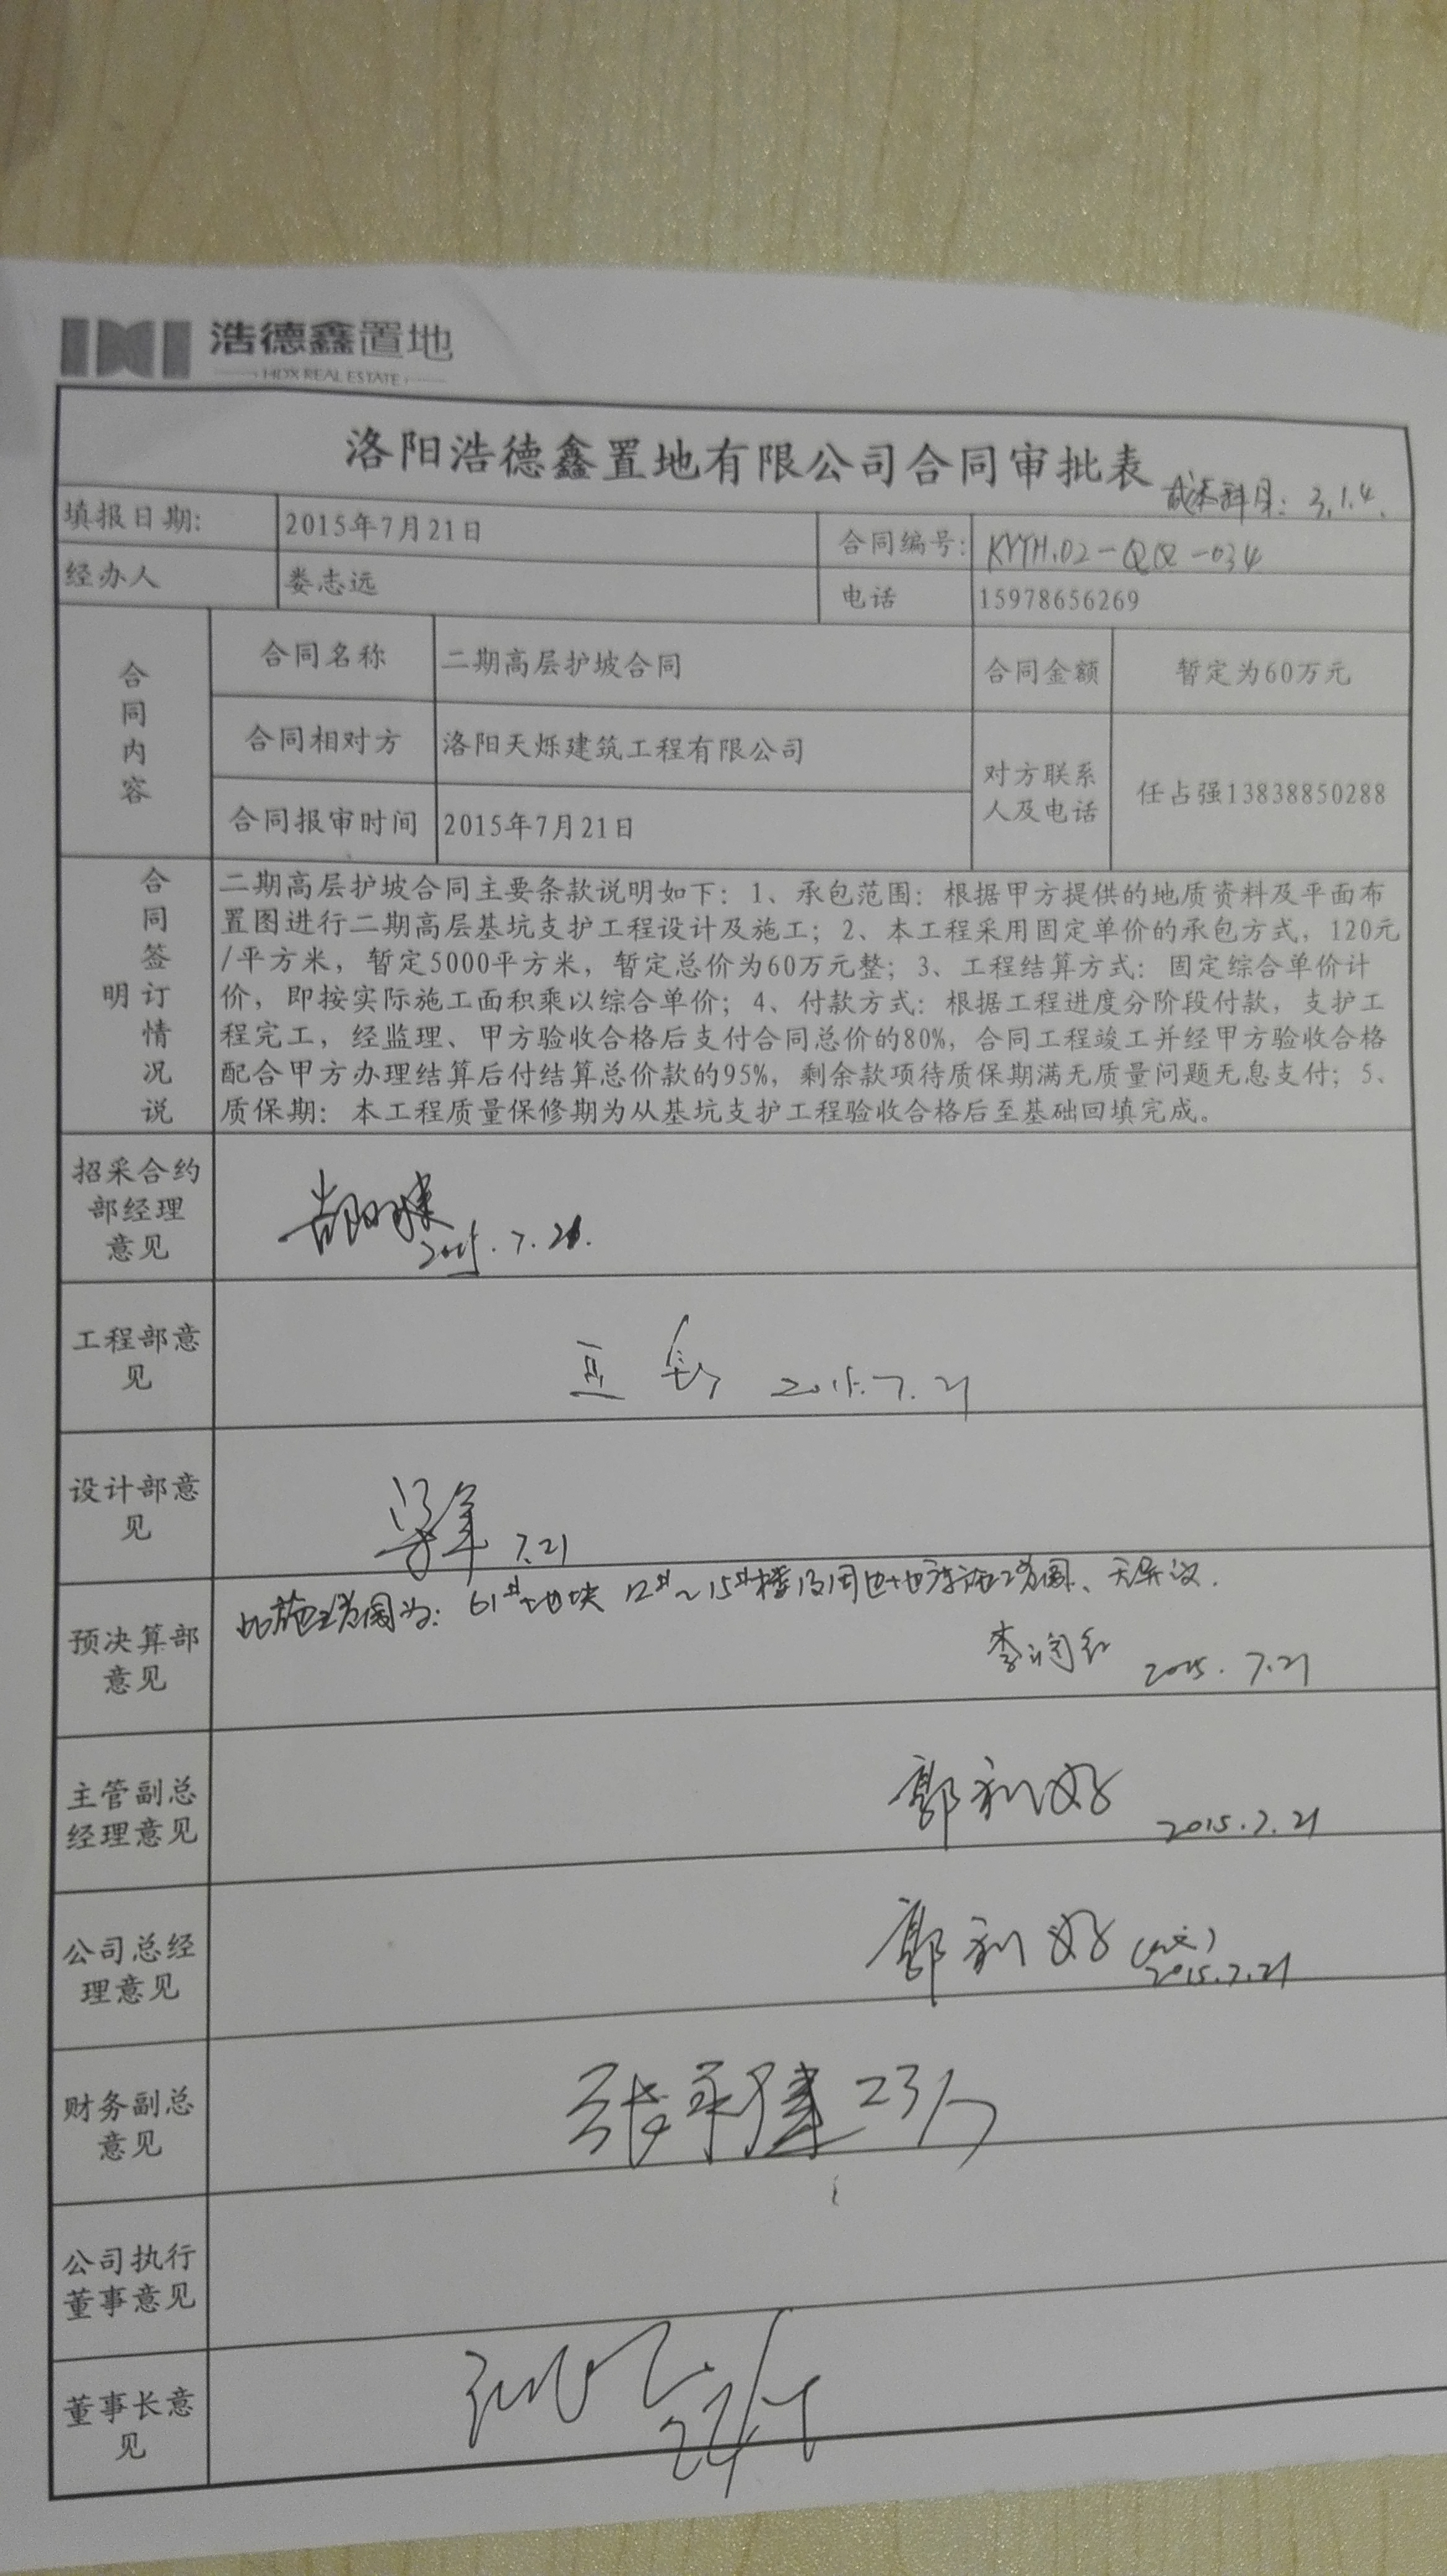 浩德鑫置地
HDX REAL ESTATE
洛阳浩德鑫置地有限公司合同审批表
成本科目：3.1.4.
填报日期:
2015年7月21日
合同编号:
KYYH.02-QQ-034
经办人
娄志远
电话
15978656269
合同内容
合同名称
二期高层护坡合同
合同金额
暂定为60万元
合同相对方
洛阳天烁建筑工程有限公司
对方联系
人及电话
任占强13838850288
合同报审时间
2015年7月21日
合同签订情况说明
二期高层护坡合同主要条款说明如下：1、承包范围：根据甲方提供的地质资料及平面布
置图进行二期高层基坑支护工程设计及施工；2、本工程采用固定单价的承包方式，120元
/平方米，暂定5000平方米，暂定总价为60万元整；3、工程结算方式：固定综合单价计
价，即按实际施工面积乘以综合单价；4、付款方式：根据工程进度分阶段付款，支护工
程完工，经监理、甲方验收合格后支付合同总价的80%，合同工程竣工并经甲方验收合格
配合甲方办理结算后付结算总价款的95%，剩余款项待质保期满无质量问题无息支付；5、
质保期：本工程质量保修期为从基坑支护工程验收合格后至基础回填完成。
招采合约
部经理
意见
2015.7.21.
工程部意
见
2015.7.21
设计部意
见
7.21
预决算部
意见
此施工范围为：61#地块 12#~15#楼及周边地库施工范围、无异议.
2015.7.21
主管副总
经理意见
郭利好
2015.7.21
公司总经
理意见
郭利好
2015.7.21
财务副总
意见
23/7
公司执行
董事意见
董事长意
见